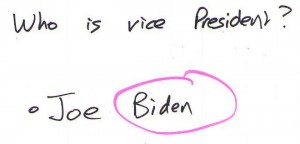 Who is vice President?
• Joe Biden